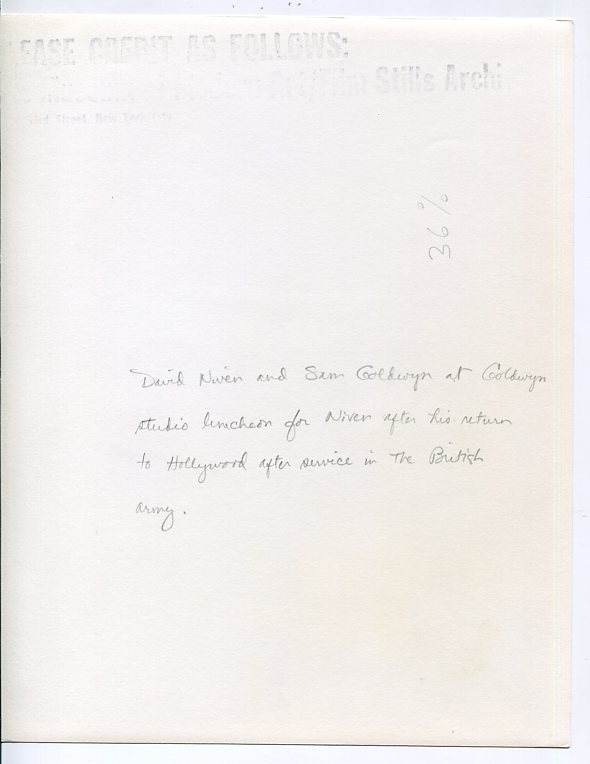 EASE CREDIT AS FOLLOWS:
Art/Film Stills Archi
3rd Street, New York City
36%
David Niven and Sam Goldwyn at Goldwyn
studio luncheon for Niven after his return
to Hollywood after service in The British
army.